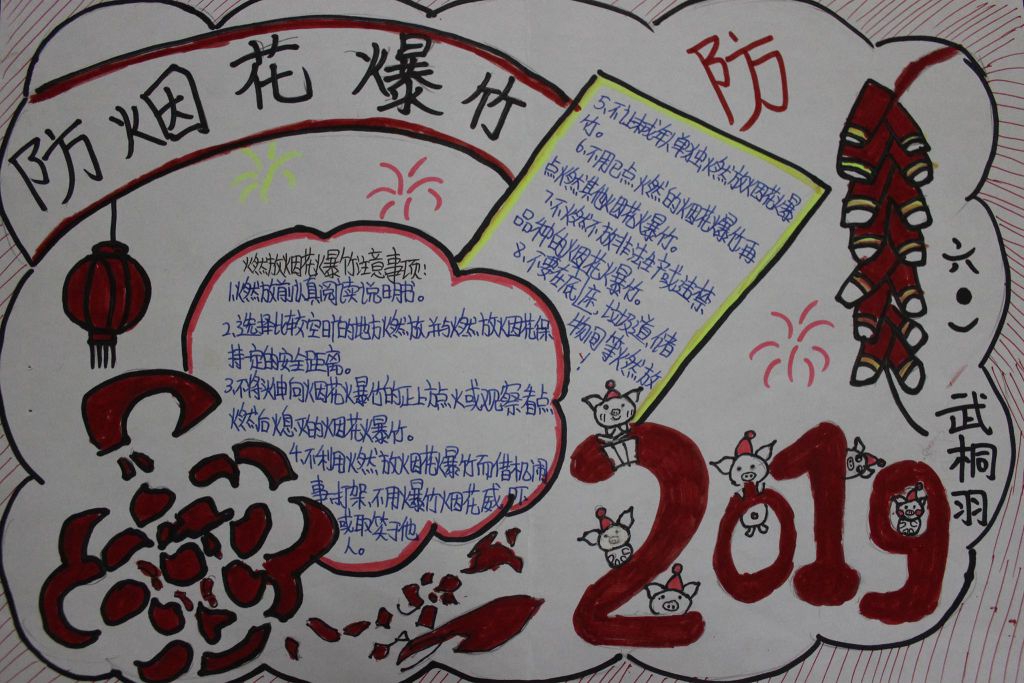 防烟花爆竹
防
燃放烟花爆竹注意事项:
1.燃放前认真阅读说明书。
2.选择比较空旷的地方燃放并与燃放烟花保
持一定的安全距离。
3.不将火伸向烟花爆竹的正上方点火或观察看点
燃后熄灭的烟花爆竹。
4.不利用燃放烟花爆竹而借机闹
事打架,不用爆竹烟花威吓
或取笑于他
人。
5.不让城海人单独燃放烟花爆
竹。
6.不用已点燃的烟花爆竹再
点燃其他烟花爆竹。
7.不燃不放非法生产或违禁
品种的烟花爆竹。
8.不要在底床,垃圾道,储
物间等燃放
!
六(•)
武桐羽
2019